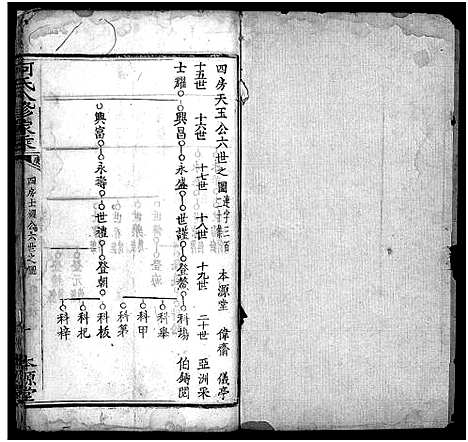 四房天玉公六世之圖 連字三百二十號 本源堂 偉齋 儀亭
十五世 十六世 十七世 十八世 十九世 二十世 亞洲采
士耀 興昌 永盛 世謹 登 科場 伯鑄閱
科舉
科甲
科第
興富 永壽 世禮 登朝 科板
科杷
科梓
何氏八修家乘
四房士耀公六世之圖
本源堂